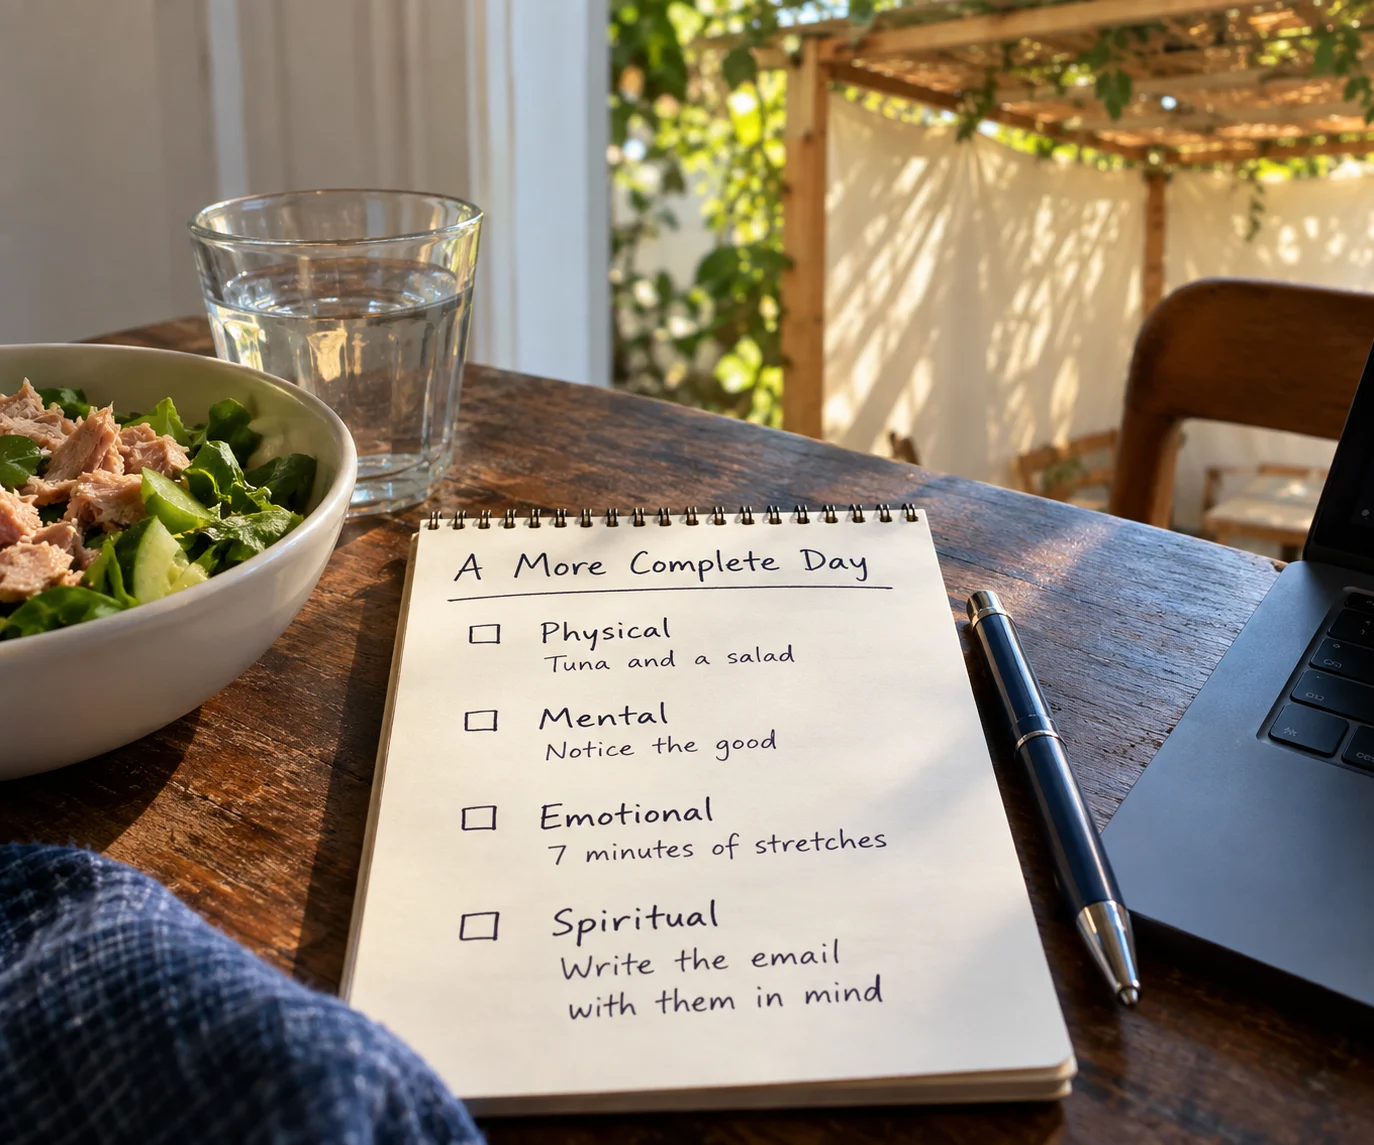 A More Complete Day
Physical
Tuna and a salad
Mental
Notice the good
Emotional
7 minutes of stretches
Spiritual
Write the email
with them in mind